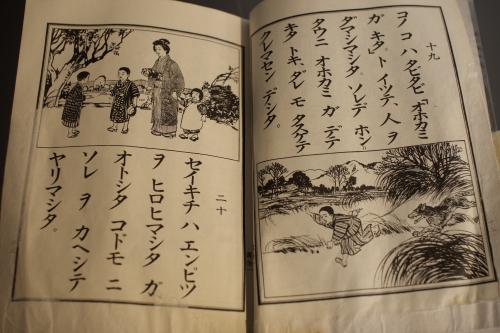 十九
コノ コ ハ タビタビ「オホカミ
ガ キタ」ト イツテ、人 ヲ
ダマシマシタ。ソレデ ホン
タウニ オホカミ ガ デテ
キタ トキ、ダレ モ タスケテ
クレマセン デシタ。
二十
セイキチ ハ エンピツ
ヲ ヒロヒマシタ ガ
オトシタ コドモ ニ
ソレ ヲ カヘシテ
ヤリマシタ。